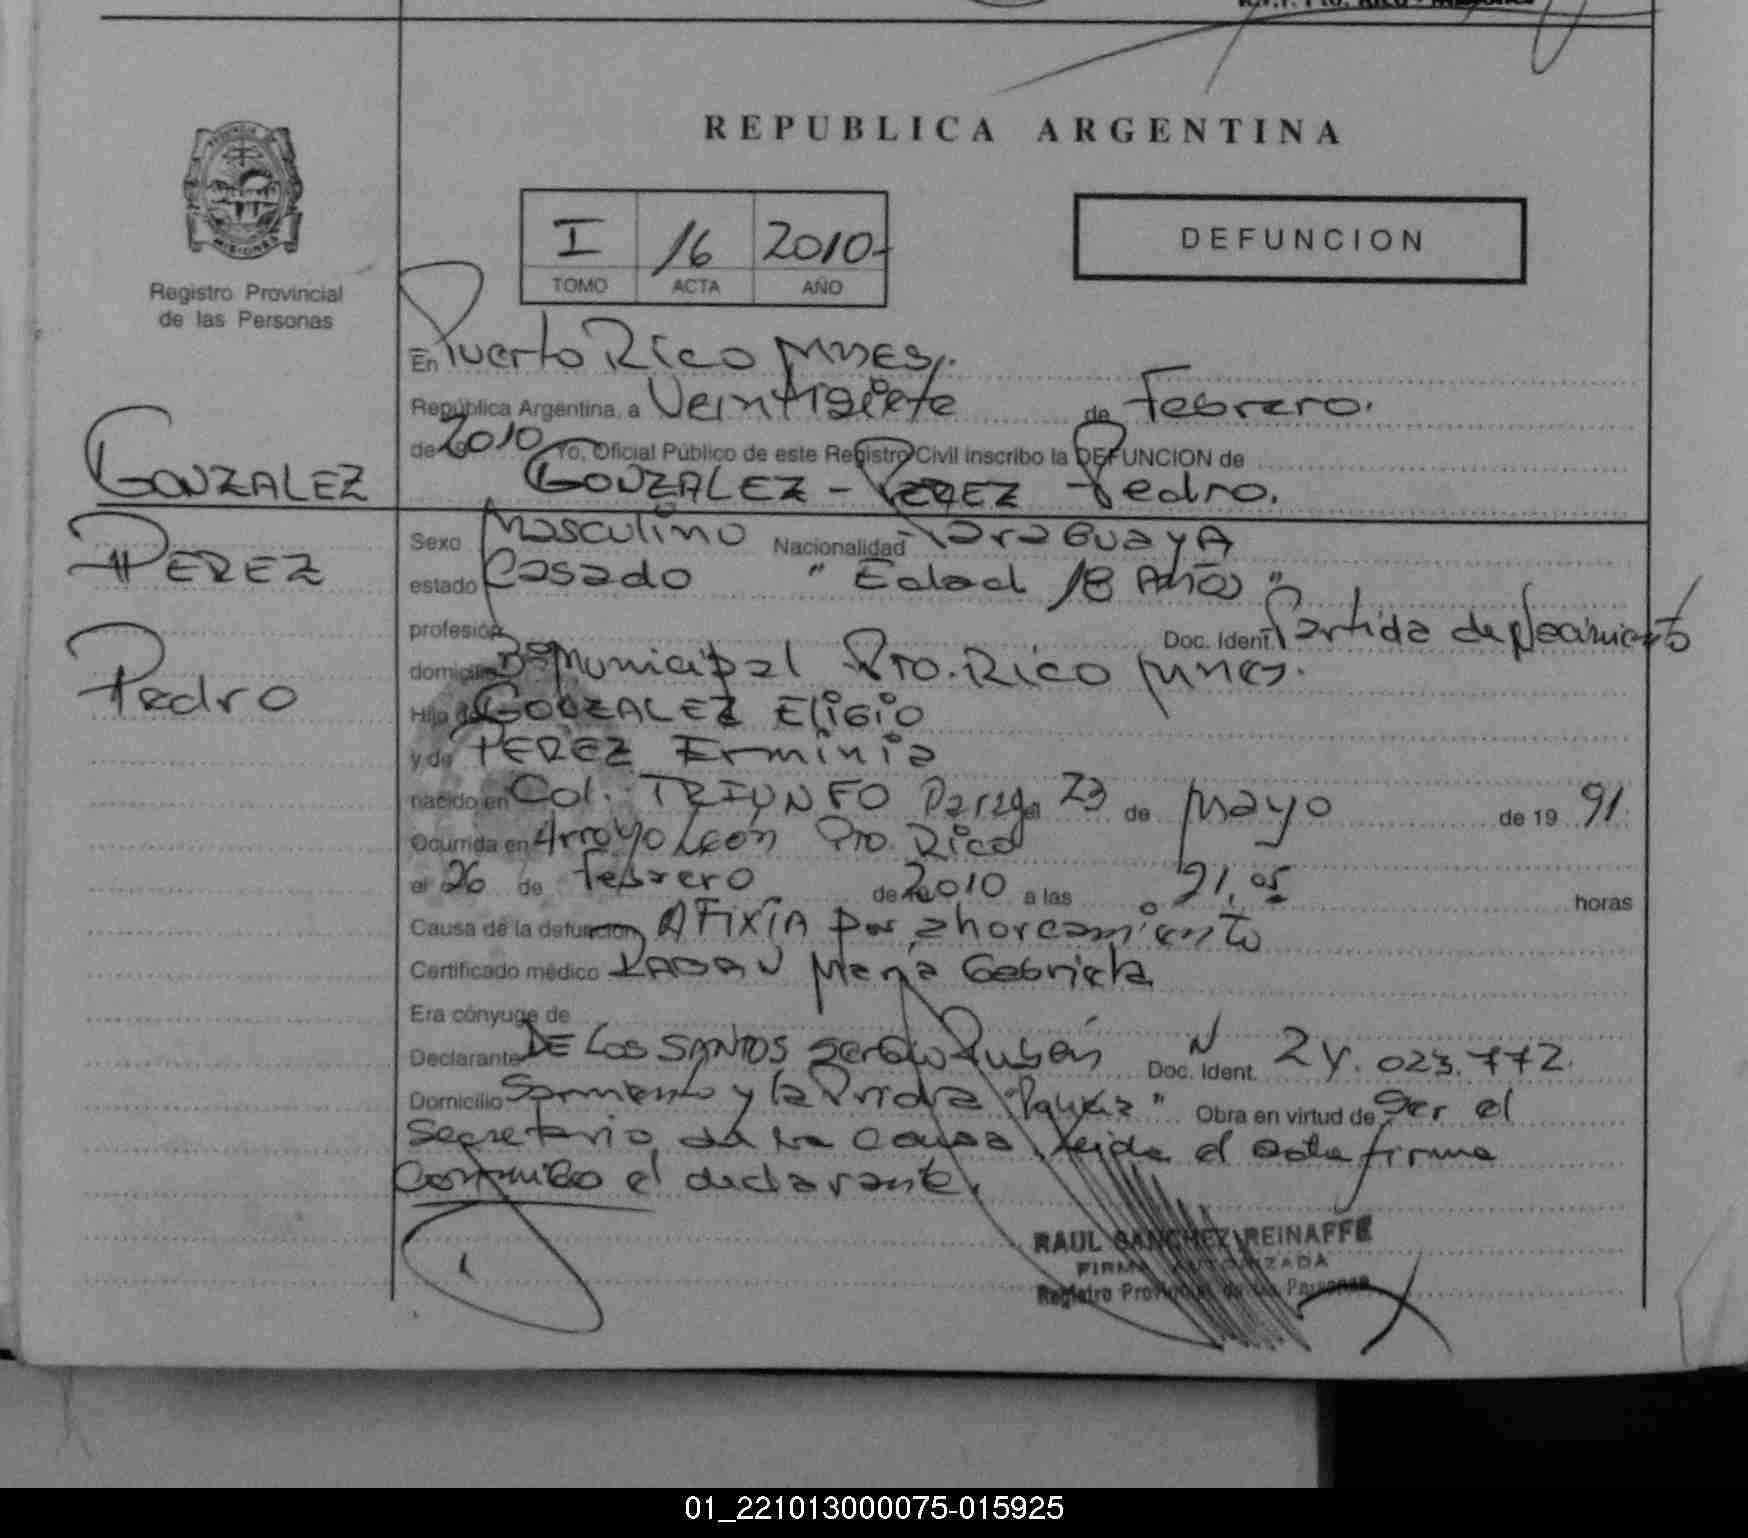 REPUBLICA ARGENTINA
I 16 2010-
TOMO ACTA AÑO
DEFUNCION
MISIONES
Registro Provincial
de las Personas
En Puerto Rico Mnes.
República Argentina, a Veintisiete de Febrero.
de 2010 Yo, Oficial Público de este Registro Civil inscribo la DEFUNCION de
GONZALEZ - PEREZ Pedro.
GONZALEZ
PEREZ
Pedro
Sexo Masculino Nacionalidad Paraguaya
estado Casado " Edad 18 Años "
profesión Doc. Ident. Partida de Nacimiento
domicilio Bº Municipal Pto. Rico Mnes.
Hijo de GONZALEZ Eligio
y de PEREZ Erminia
nacido en Col. TRIUNFO Parag. el 23 de Mayo de 19 91
Ocurrida en Arroyo León Pto. Rico
el 26 de Febrero de 2010 a las 21,05 horas
Causa de la defunción AFIXIA por ahorcamiento
Certificado médico María Gabriela
Era cónyuge de
Declarante DE LOS SANTOS Sergio Rubén Doc. Ident. N 24.023.772.
Domicilio Sarmiento y la Prida Obra en virtud de Ser el
Secretario de la Causa leida el acta firma
Conmigo el declarante.
RAUL SANCHEZ REINAFFE
FIRMA AUTORIZADA
Registro Provincial de las Personas
01_221013000075-015925